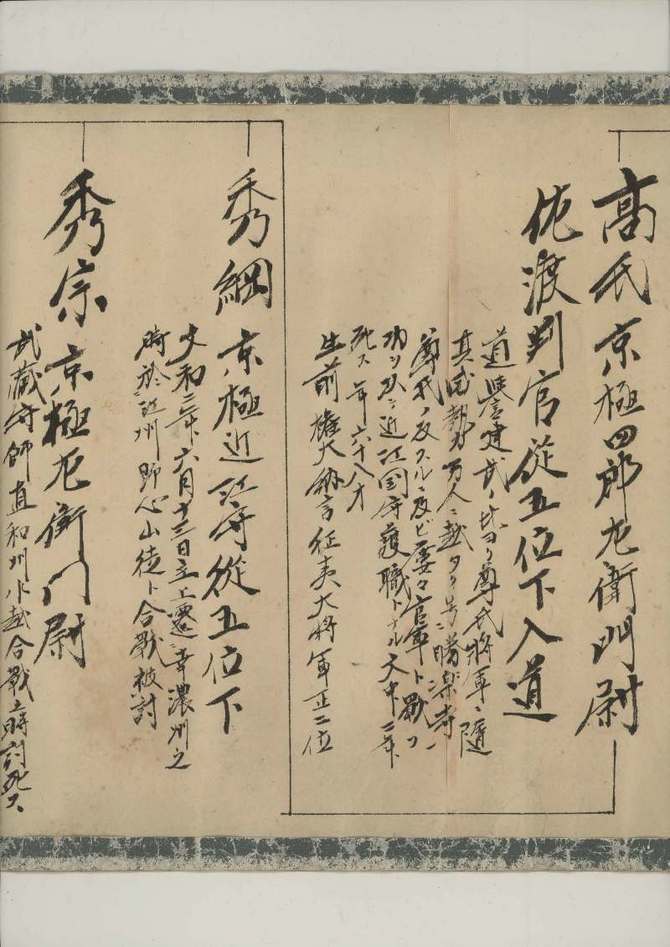 高氏 京極四郎左衛門尉
佐渡判官従五位下入道
道誉建武ノ比ヨリ尊氏将軍ニ随
其武功万人ニ越タリ号勝楽寺
尊氏ノ反スルニ及ビ屡々官軍ト戦フ
功ヲ以ニ近江国守護職トナル文中二年
死ス年六十八才
生前権大納言征夷大将軍正二位
秀綱 京極近江守従五位下
文和二年六月十三日主上還幸濃州之
時於江州野心山徒ト合戦被討
秀宗 京極左衛門尉
武蔵守師直和州水越合戦之時討死ス